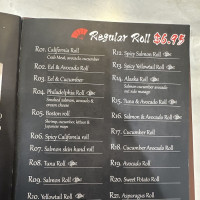 Regular Roll $6.95
R01. California Roll
Crab Meat, avocado, cucumber
R02. Eel & Avocado Roll
R03. Eel & Cucumber
R04. Philadelphia Roll
Smoked salmon, avocado & cream cheese
R05. Boston roll
Shrimp, cucumber, lettuce & japanese mayo
R06. Spicy California roll
R07. Salmon skin hand roll
R08. Tuna Roll
R09. Salmon Roll
R10. Yellowtail Roll
R12. Spicy Salmon Roll
R13. Spicy Yellowtail Roll
R14. Alaska Roll
Salmon cucumber avocado
R15. Tuna & Avocado Roll
R16. Salmon & Avocado Roll
R17. Cucumber Roll
R18. Cucumber Avocado Roll
R19. Avocado Roll
R20. Sweet Potato Roll
R21. Asparagus Roll